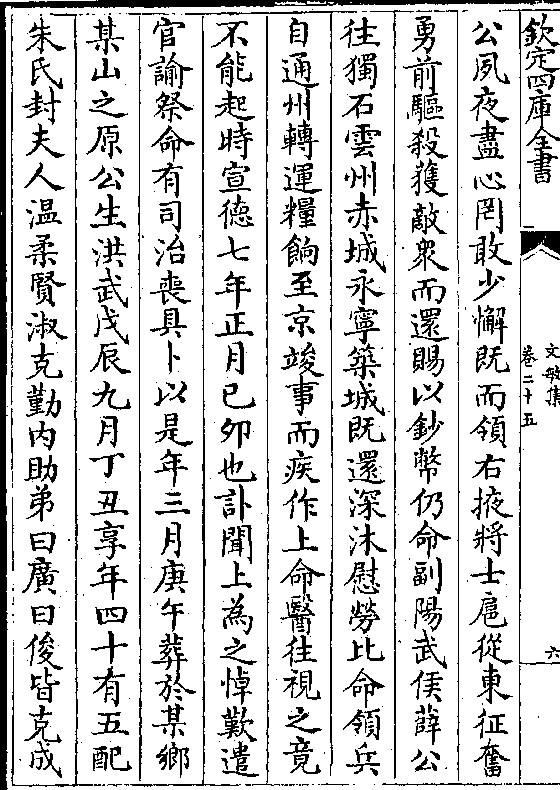 欽定四庫全書
文敏集
卷二十五
六
公夙夜盡心罔敢少懈既而領右掖將士扈從東征奮
勇前驅殺獲敵衆而還賜以鈔幣仍命副陽武侯薛公
往獨石雲州赤城永寧築城既還深沐慰勞比命領兵
自通州轉運糧餉至京竣事而疾作上命醫往視之竟
不能起時宣德七年正月已夘也訃聞上為之悼歎遣
官諭祭命有司治喪具卜以是年三月庚午葬於某鄉
某山之原公生洪武戊辰九月丁丑享年四十有五配
朱氏封夫人温柔賢淑克勤内助弟曰廣曰俊皆克成